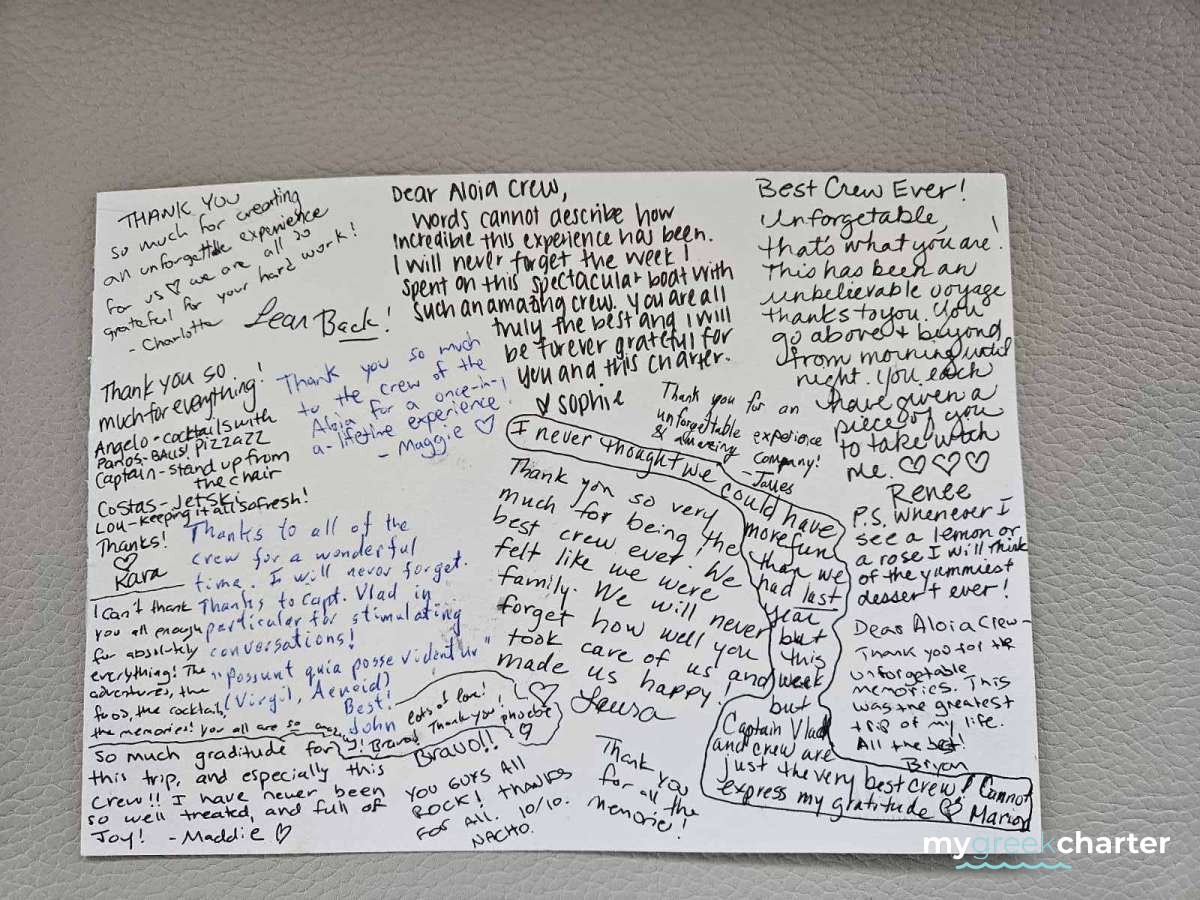 THANK YOU
so much for creating
an unforgettable experience
for us ♡ we are all so
grateful for your hard work!
- Charlotte
Lean Back!
Dear Aloia Crew,
words cannot describe how
incredible this experience has been.
I will never forget the week I
spent on this spectacular boat with
such an amazing crew. you are all
truly the best and I will
be forever grateful for
you and this charter.
♡ sophie
Best Crew Ever!
Unforgetable,
that's what you are!
This has been an
unbelievable voyage
thanks to you. You
go above & beyond
from morning until
night. You each
have given a
piece of you
to take with
me. ♡♡♡
Renee
P.S. Whenever I
see a lemon or
a rose I will think
of the yummiest
dessert ever!
Thank you so
much for everything!
Angelo - cocktails with
Panos - BALLS! pizzazz
Captain - stand up from
the chair
Costas - Jetski
Lou - keeping it all so fresh!
Thanks!
♡
Kara
Thank you so much
to the crew of the
Aloia for a once-in-
a-lifetime experience!
- Maggie ♡
Thank you for an
unforgettable experience
& amazing company!
- James
Thanks to all of the
crew for a wonderful
time. I will never forget.
Thanks to Capt. Vlad in
particular for stimulating
conversations!
"Possunt quia posse videntur"
(Virgil, Aeneid)
Best!
John
I can't thank
you all enough
for absolutely
everything! The
adventures, the
food, the cocktails,
the memories! You all are so
Bravo! Thank you!
Lots of love!
phoebe
♡
Thank you so very
much for being the
best crew ever! We
felt like we were
family. We will never
forget how well you
took care of us and
made us happy!
♡ Laura
I never thought we could have
more fun
than we
had last
year
but
this
week
but
Captain Vlad
and crew are
just the very best crew! Cannot
express my gratitude ♡ Marion
Dear Aloia Crew -
Thank you for the
unforgetable
memories. This
was the greatest
trip of my life.
All the best!
Bryan
So much graditude for
this trip, and especially this
crew!! I have never been
so well treated, and full of
Joy! - Maddie ♡
Bravo!!
YOU GUYS All
ROCK! THANKS
FOR All. 10/10.
NACHO.
Thank you
for all the
memories!
mygreekcharter